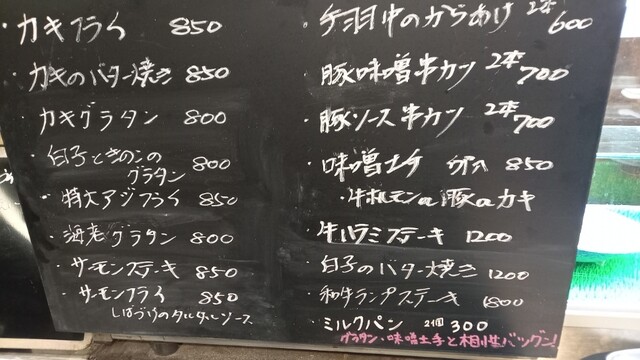 ・カキフライ 850
・カキのバター焼き 850
・カキグラタン 800
・白子ときのこの
グラタン 800
・特大アジフライ 850
・海老グラタン 800
・サーモンステーキ 850
・サーモンフライ 850
しばづけのタルタルソース
・手羽中のからあげ 2本 600
・豚味噌串カツ 2本 700
・豚ソース串カツ 2本 700
・味噌土手 850
・牛ホルモンor豚orカキ
・牛ハラミステーキ 1200
・白子のバター焼き 1200
・和牛ランプステーキ 1800
・ミルクパン 2個 300
グラタン・味噌土手と相性バツグン!